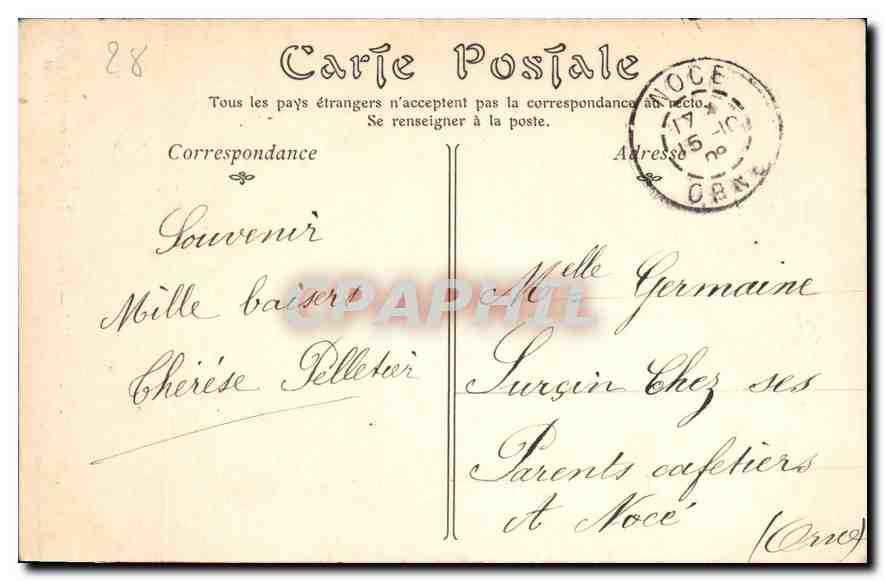 28
Carte Postale
Tous les pays étrangers n'acceptent pas la correspondance au recto.
Se renseigner à la poste.
Correspondance
Adresse
NOCE
17
15 -10
09
ORNE
Souvenir
Mille baisers
Thérése Pelletier
CPAPHIL
Melle Germaine
Surçin Chez ses
Parents cafetiers
A Nocé
(Orne)